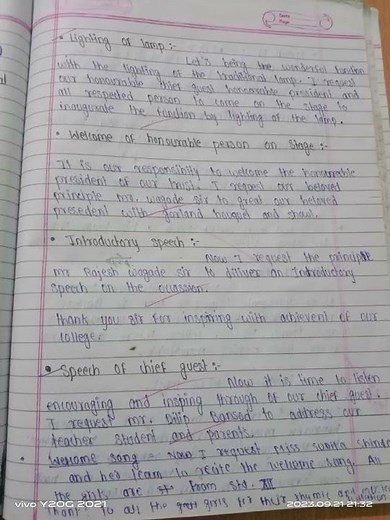 • Lighting of lamp :-
Let's being the wonderful function
with the lighting of the traditional lamp. I request
our honourable chief guest honourable president and
all respected person to come on the stage to
inaugurate the function by lighting of the lamp.
• Welcome of honourable person on Stage :-
It is our responsibity to welcome the honourable
president of our trust. I request our beloved
principle mr. wagade sir to great our beloved
presedent with garland bouquet and shawl.
• Introductory speech :-
Now I request the principle
mr Rajesh wagade sir to diliver an Introductory
speech on the
thank you sir for inspiring with achievent of our
college.
• Speech of chief guest :-
Now it is time to listen
encouraging and through of our chief guest.
I request mr. Dilip Bansod to address our
teacher student and parents.
• Welcome song - Now I request Miss sunita shinde
and her team to recite the welcome song. All
the girls are from std. XII
thank to all the great girls for their rhymic and
vivo Y20G 2021
2023.09.21 21:32